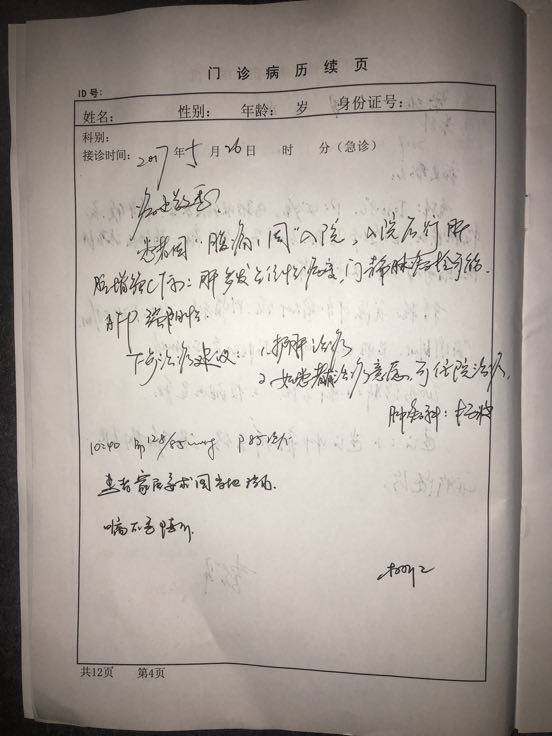 门诊病历续页
ID号：
姓名： 性别： 年龄： 岁 身份证号：
科别：
接诊时间：2017年5月26日 时 分（急诊）
病史敬悉
患者因"腹痛1周"入院，入院后行肝
脏增强CT示：肝多发占位性病变，门静脉癌栓可能.
AFP 强阳性.
下步治疗建议：1.护肝治疗
2.如患者有治疗意愿，可住院治疗.
肿瘤科：
10:40 Bp 128/85mmHg P 85次/分
患者家属要求回当地治疗.
嘱不适随诊.
共12页 第4页